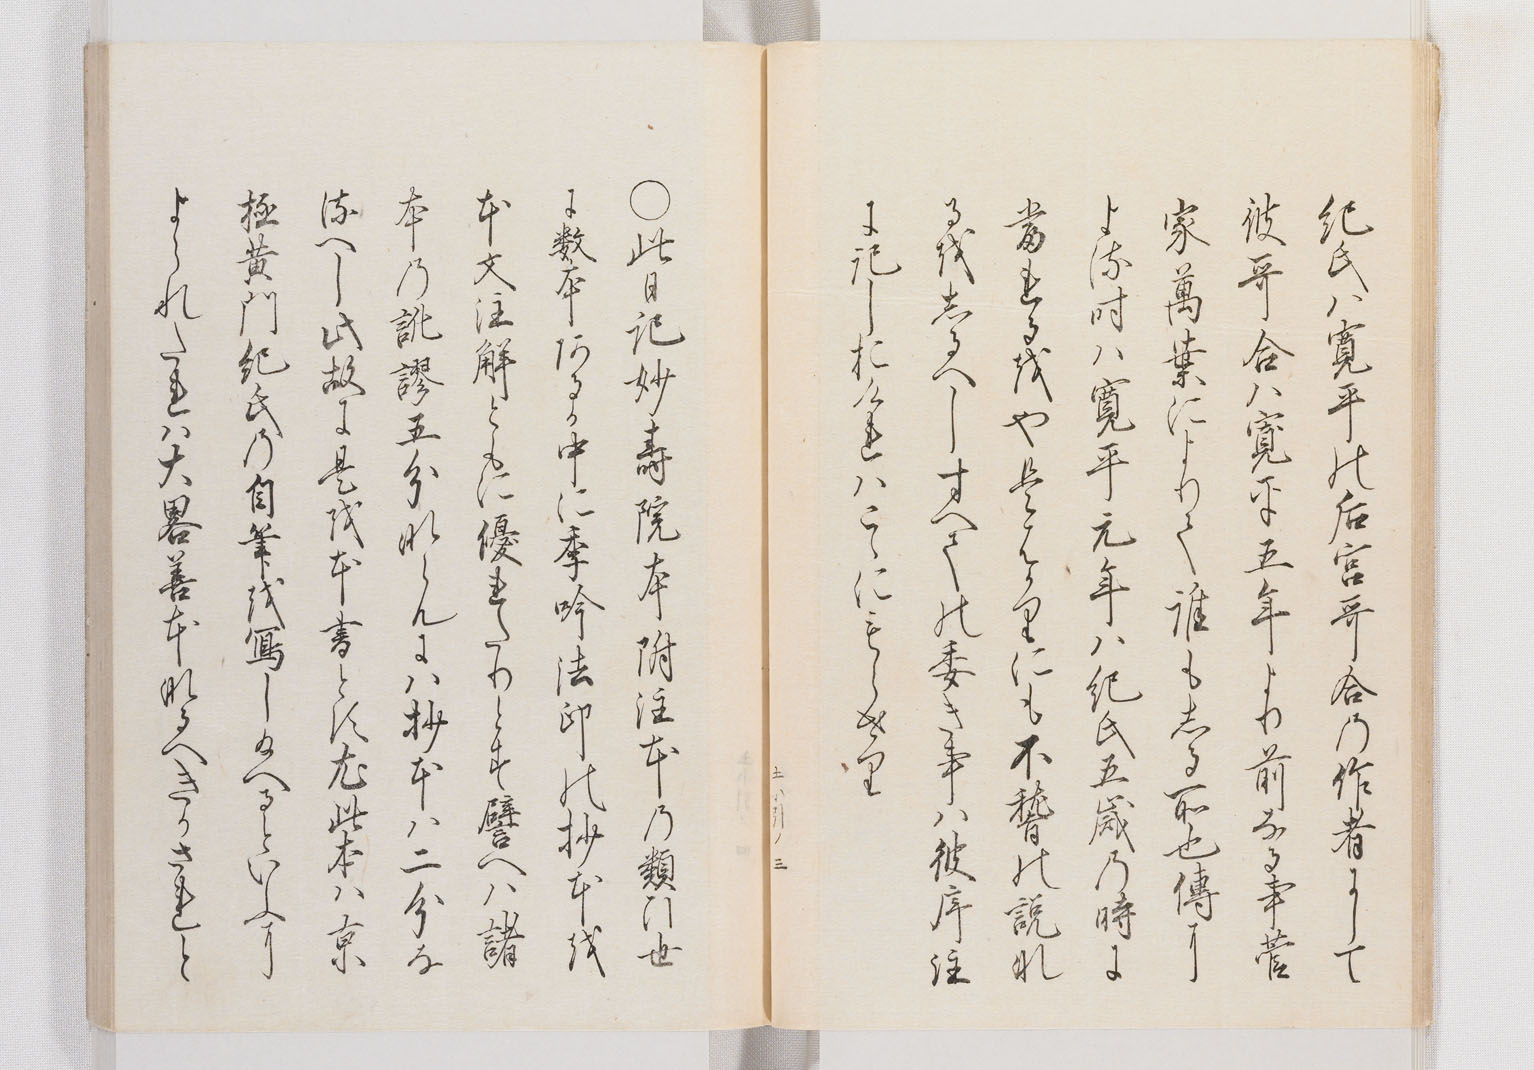 紀氏ハ寛平の后宮哥合乃作者にして
彼哥合ハ寛平五年より前なる事菅
家萬葉によりて誰もしる所也傳に
よる時ハ寛平元年ハ紀氏五歳乃時に
當れるをや是はかりにも不稽の説な
るをしるへしすへての委き事ハ彼序注
に記しおけれハこゝにもらせり
〇此日記妙壽院本附注本乃類行世
に数本あるか中に季吟法印の抄本を
本文注解ともに優れたりとす譬へハ諸
本乃訛謬五分ならんにハ抄本ハ二分な
るへし此故に是を本書とす尤此本ハ京
極黄門紀氏乃自筆を寫し給へるといふに
よられたれハ大畧善本なるへきかされと
土ハ引ノ三